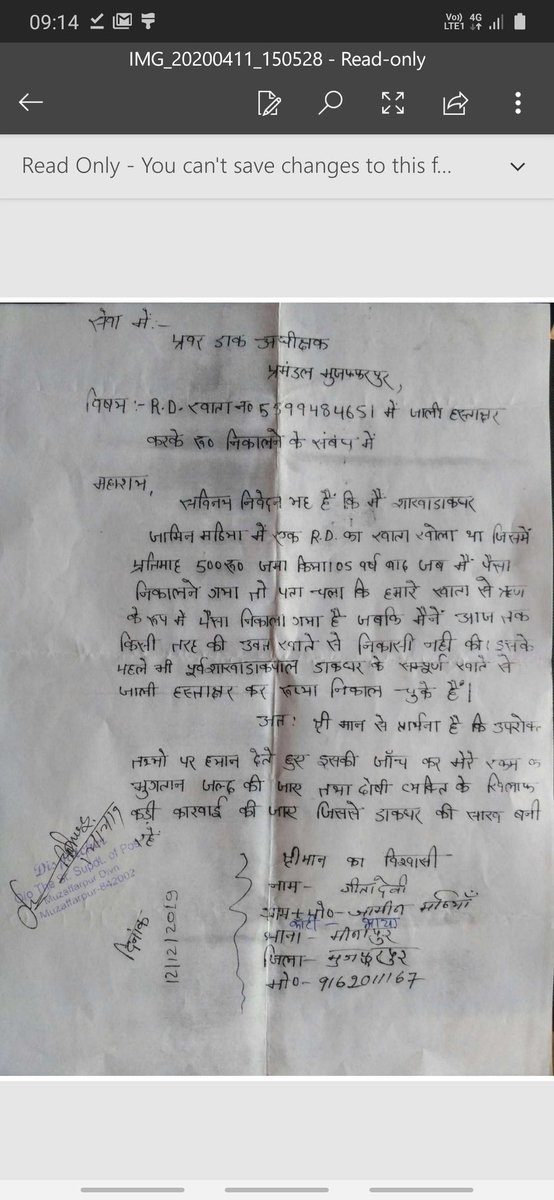 09:14
Vo)) 4G
LTE1
IMG_20200411_150528 - Read-only
Read Only - You can't save changes to this f...
सेवा में:-
प्रवर डाक अधीक्षक
प्रमंडल मुजफ्फरपुर,
विषय:- R.D. खाता न० 5399484651 में जाली हस्ताक्षर
करके रू० निकालने के संबंध में
महाशय,
सविनय निवेदन यह हैं कि मै शाखाडाकघर
जामिन मठिया में एक R.D. का खाता खोला था जिसमें
प्रतिमाह 500रू० जमा किया। 05 वर्ष बाद जब मैं पैसा
निकालने गया तो पता चला कि हमारे खाता से ऋण
के रूप में पैसा निकाला गया है जबकि मैनें आज तक
किसी तरह की उक्त खाते से निकासी नही की। इसके
पहले भी पूर्व शाखाडाकपाल डाकघर के सम्पूर्ण खाते से
जाली हस्ताक्षर कर रूप्या निकाल चुके हैं।
अतः श्री मान से प्रार्थना है कि उपरोक्त
तथ्यो पर ध्यान देते हुए इसकी जाँच कर मेरे रकम क
भुगतान जल्द की जाए तथा दोषी व्यक्ति के खिलाफ
कड़ी कारवाई की जाए जिससे डाकघर की साख बनी
रहे
श्रीमान का विश्वासी
नाम- गीता देवी
ग्राम+पो०- जामीन मठियाँ
भाया
थाना- मीनापुर
जिला- मुजफ्फरपुर
मो०- 9162011167
दिनांक- 12/12/2019
O/o The Sr. Supdt. of Post
Muzaffarpur Divn
Muzaffarpur-842002